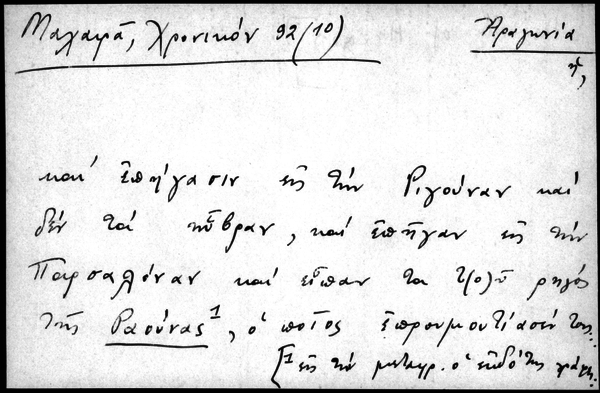 Μαχαιρᾶ, Χρονικόν 92 (10)
Ἀραγωνία
ἡ,
καί ἐπήγασιν εἰς τήν Ριγούναν καί
δέν τά ηὗβραν, καί ἐπῆγαν εἰς τήν
Παρσαλόναν καί εἶπαν τα τ(ο)ῦ ρηγός
τῆς Ραούνας¹, ὁ ποῖος ἐπρουμουτίασέν τους..
[¹ εἰς τήν μεταγρ. ὁ ἐκδότης γράφει: